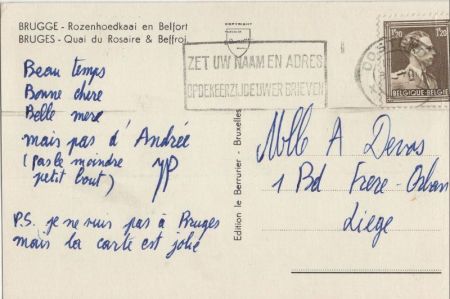 BRUGGE - Rozenhoedkaai en Belfort
BRUGES - Quai du Rosaire & Beffroi
COPYRIGHT
Beau temps
Bonne chère
Belle mère
mais pas d'Andrée
(Pas le moindre
petit bout) JP
P.S. je ne suis pas à Bruges
mais la carte est jolie
Edition le Berrurier - Bruxelles
ZET UW NAAM EN ADRES
OP DE KEERZIJDE UWER BRIEVEN
1F20 1F20
BELGIQUE-BELGIË
Mlle A Devos
1 Bd Frere-Orban
Liege